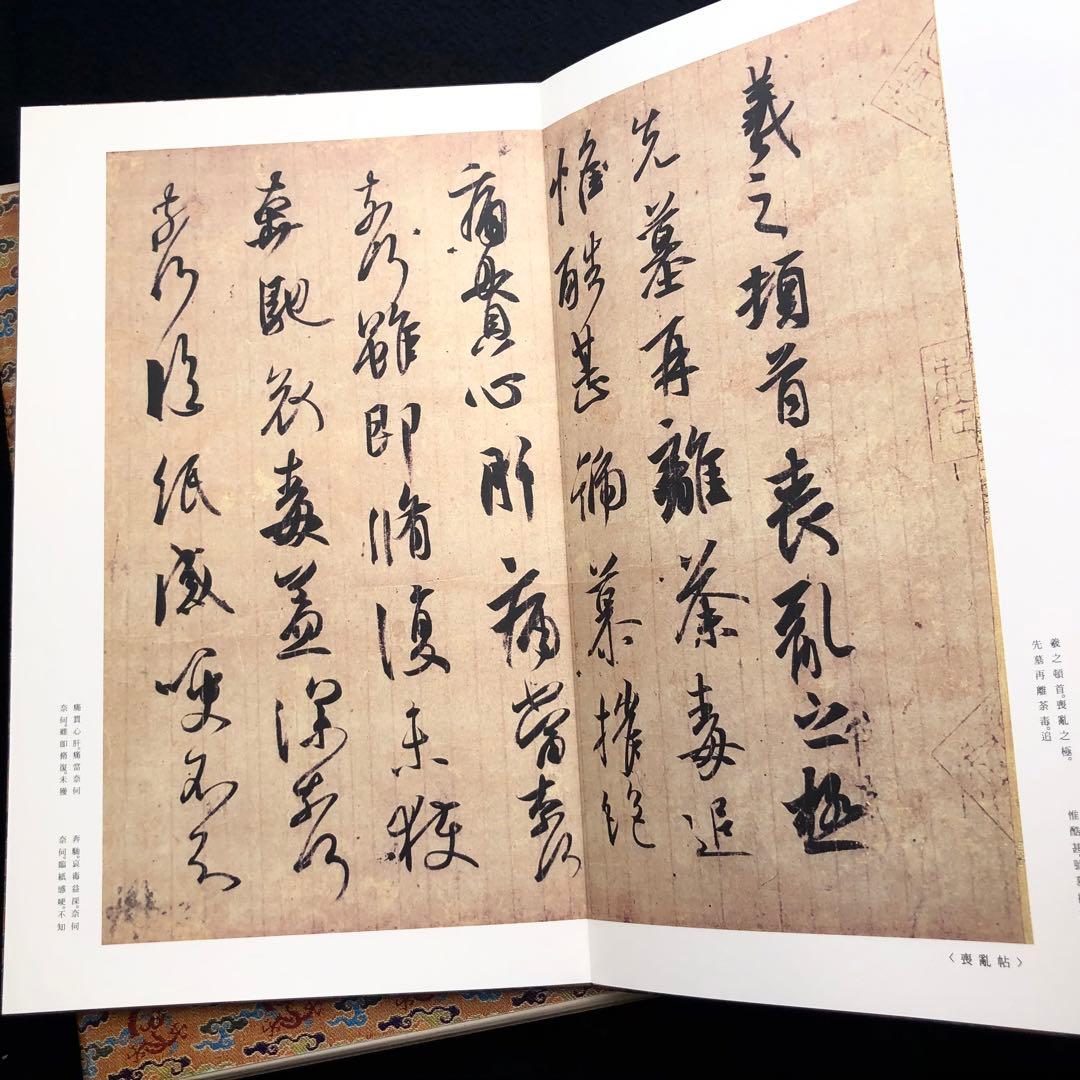 羲之頓首喪亂之極
先墓再離荼毒追
惟酷甚號慕摧絕
痛貫心肝痛當奈何
奈何雖即脩復未獲
奔馳哀毒益深奈何
奈何臨紙感哽不知
羲之頓首。喪亂之極。
先墓再離荼毒。追
惟酷甚。號慕
〈喪亂帖〉
痛貫心肝。痛當奈何
奈何。雖即脩復。未獲
奔馳。哀毒益深。奈何
奈何。臨紙感哽。不知